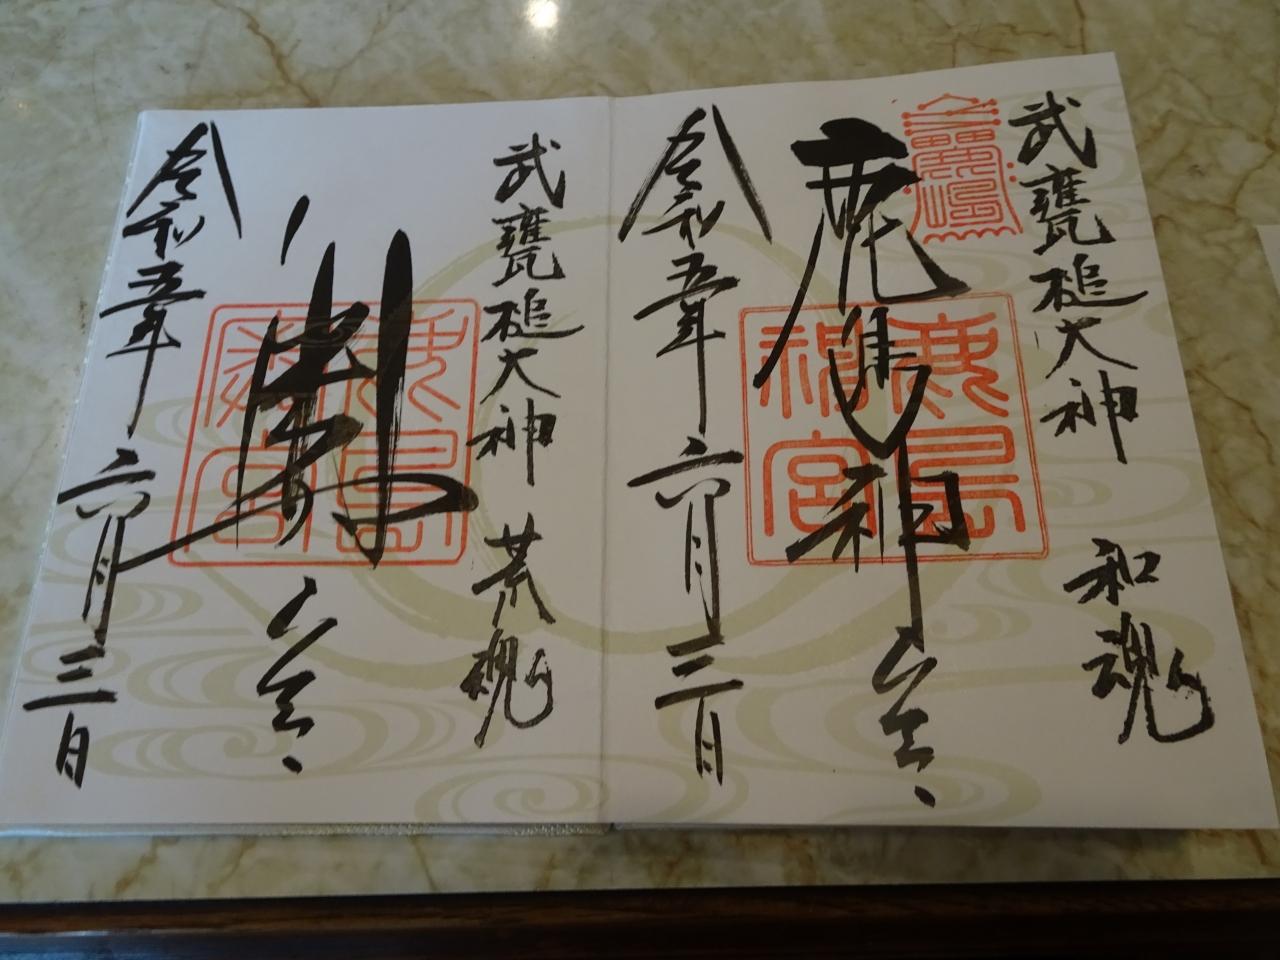 武甕槌大神 和魂
鹿島神宮
鹿島神宮
令和五年六月三日
武甕槌大神 荒魂
鹿島奥宮
奥宮
令和五年六月三日